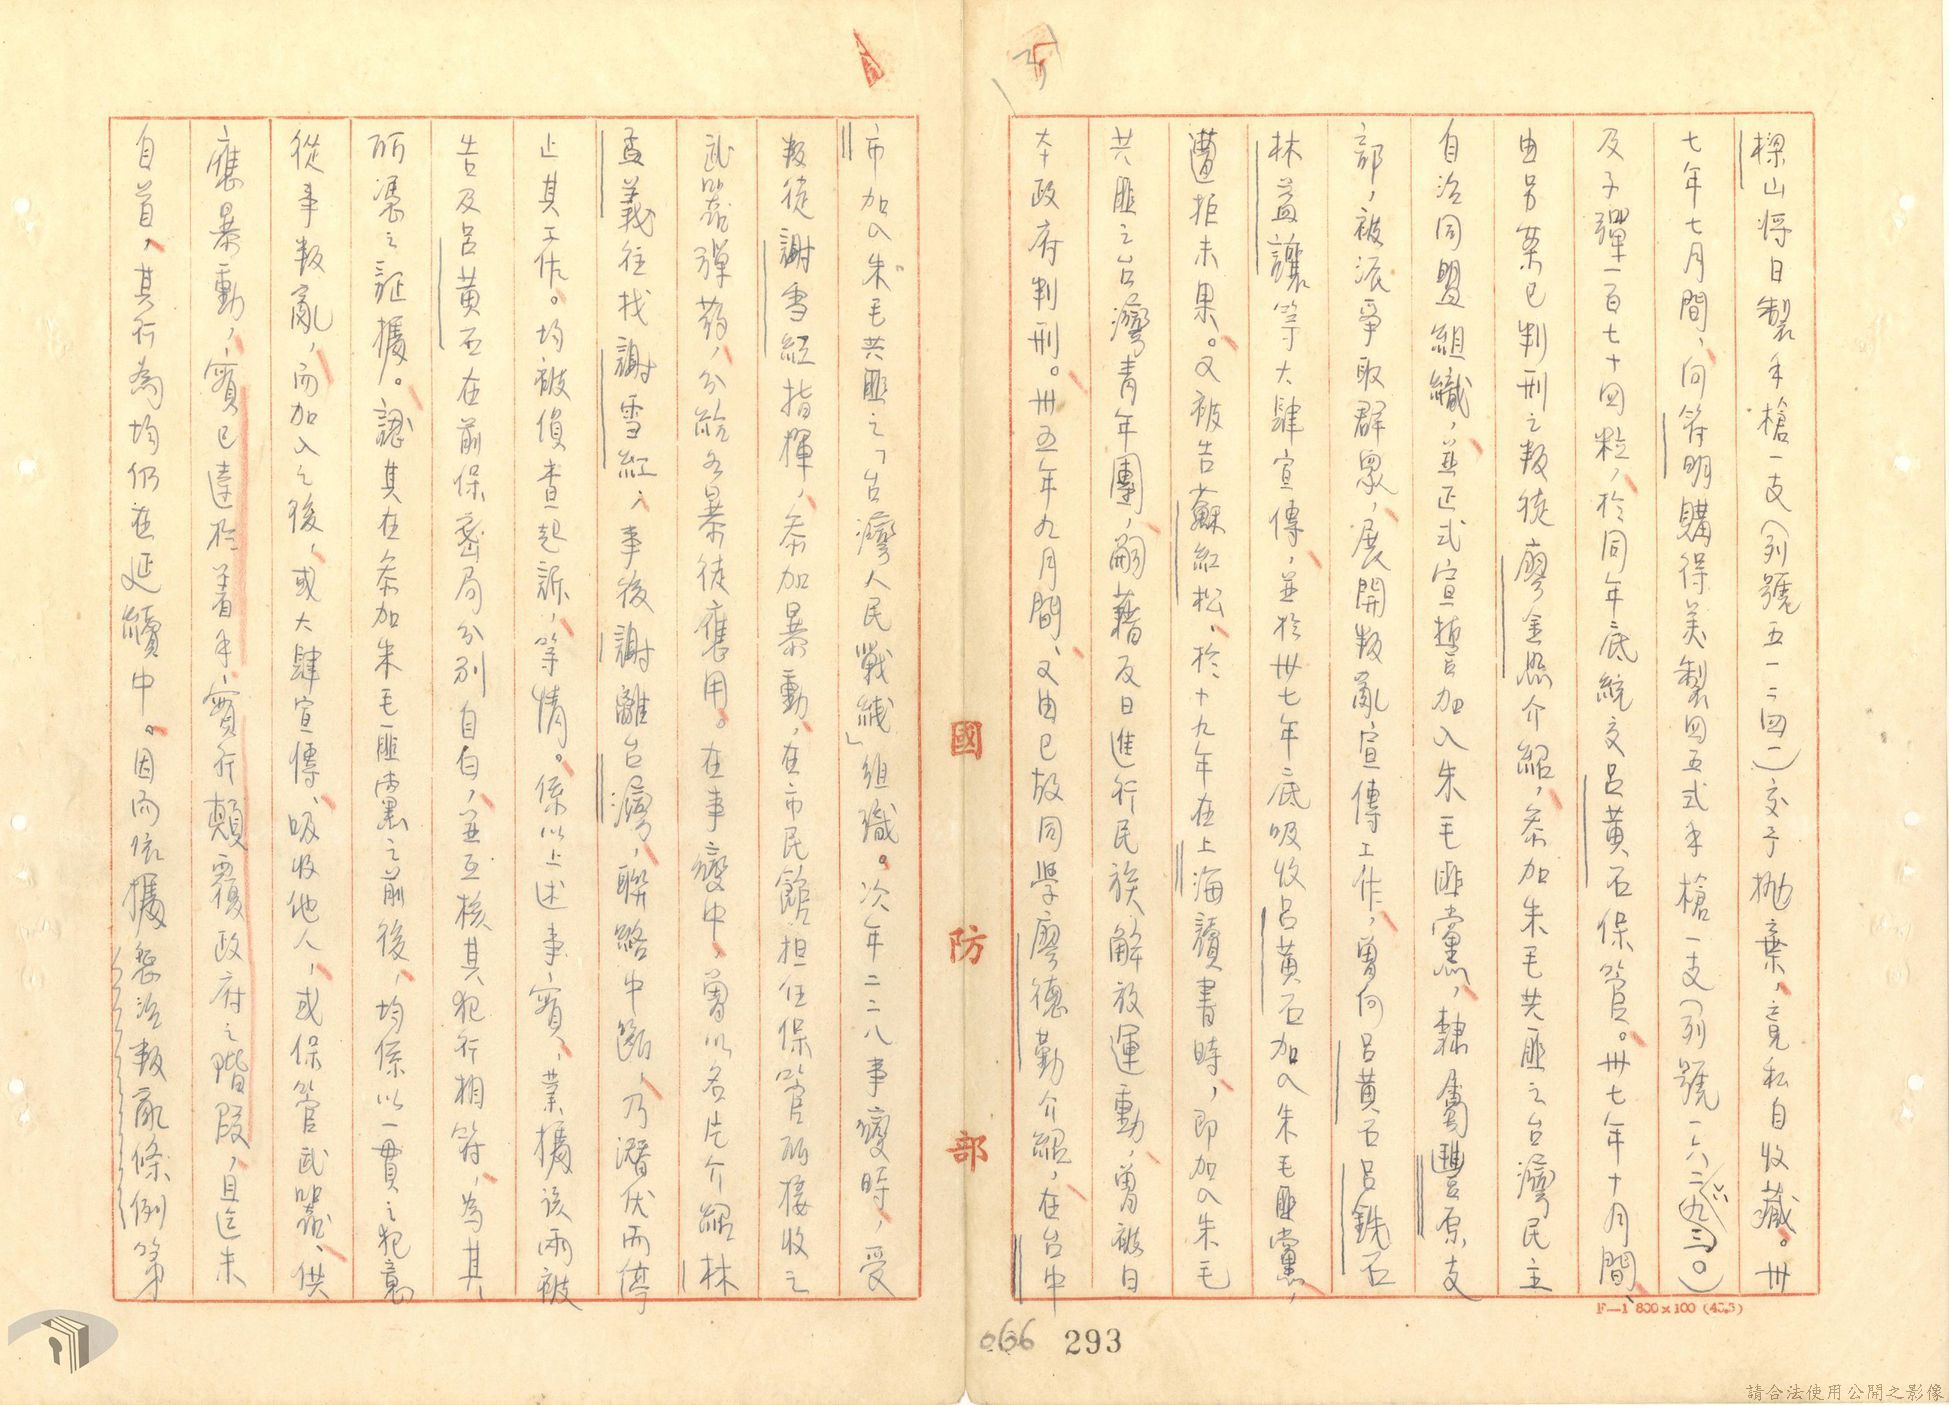 樑山將日製手槍一支(列號五一二四二)交予拋棄,竟私自收藏。卅
七年七月間,向符明購得美製四五式手槍一支(列號一六三九三〇)
及子彈一百七十四粒,於同年底統交呂黃石保管。卅七年十月間、
由另案已判刑之叛徒廖金照介紹,參加朱毛共匪之台灣民主
自治同盟組織,並正式宣誓加入朱毛匪黨,隸屬豐原支
部,被派爭取群眾,展開叛亂宣傳工作,曾向呂黃石呂銑石
林益謙等大肆宣傳,並於卅七年底吸收呂黃石加入朱毛匪黨,
遭拒未果。又被告蘇紅松、於十九年在上海讀書時,即加入朱毛
共匪之台灣青年團,嗣藉反日進行民族解放運動,曾被日
本政府判刑。卅五年九月間、又由已故同學廖德勤介紹,在台中
市加入朱毛共匪之「台灣人民戰綫」組織。次年二二八事變時,受
叛徒謝雪紅指揮,參加暴動,在市民館担任保管所接收之
武器彈葯,分給各暴徒應用。在事變中,曾以名片介紹林
孟義往找謝雪紅、事後謝離台灣,聯絡中斷,乃潛伏而停
止其工作。均被偵查起訴,等情。係以上述事實,業據該兩被
告及呂黃石在前保密局分別自白,並互核其犯行相符,為其
所憑之証據。認其在參加朱毛匪黨之前後,均係以一貫之犯意
從事叛亂,而加入之後,或大肆宣傳、吸收他人,或保管武器、供
應暴動,實已達於着手實行顛覆政府之階段,且迄未
自首,其行為均仍在延續中。因而依據懲治叛亂條例第
國防部
F—1 800×100 (40.5)
066 293
請合法使用公開之影像